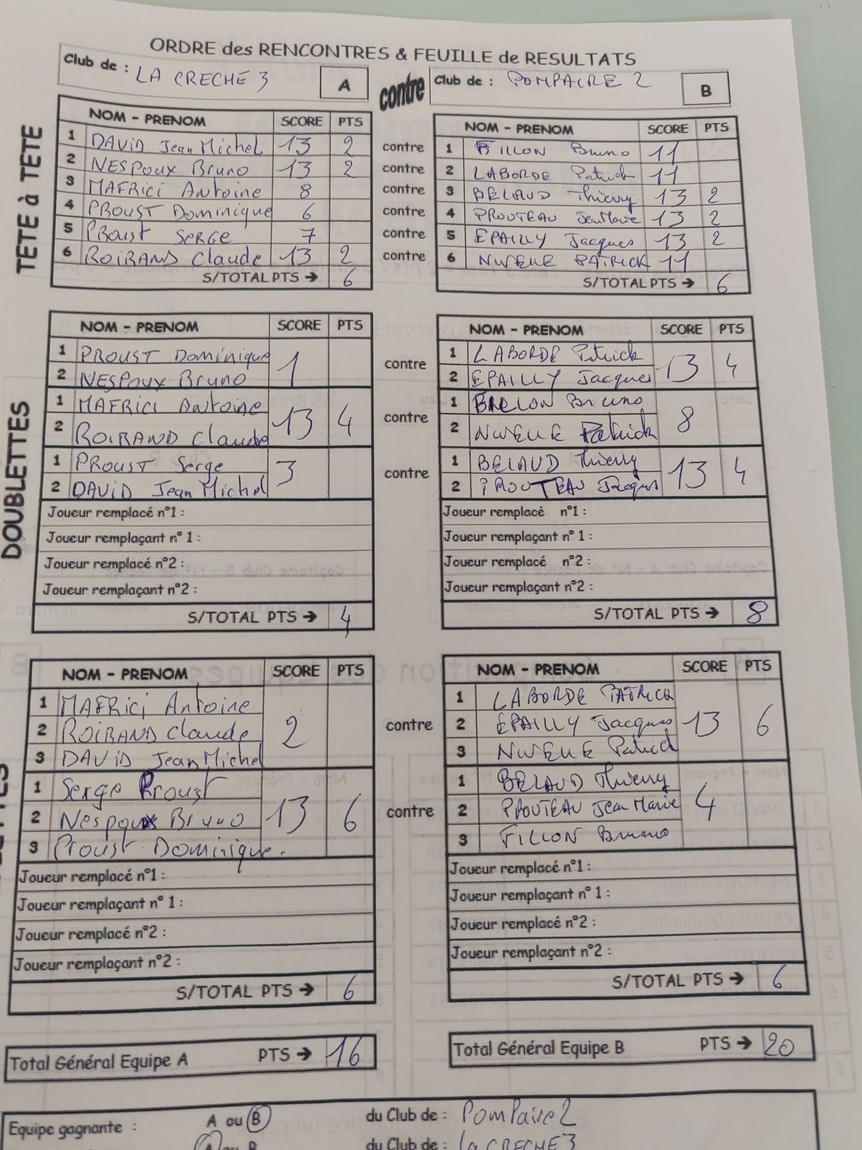 ORDRE des RENCONTRES & FEUILLE de RESULTATS
Club de : LA CRECHE 3 A contre Club de : POMPAIRE 2 B
TETE à TETE
NOM - PRENOM SCORE PTS NOM - PRENOM SCORE PTS
1 DAVID Jean Michel 13 2 contre 1 FILLON Bruno 11
2 NESPOUX Bruno 13 2 contre 2 LABORDE Patrick 11
3 MAFRICI Antoine 8 contre 3 BELAUD Thierry 13 2
4 PROUST Dominique 6 contre 4 PROUTEAU Jean Marie 13 2
5 PROUST SERGE 7 contre 5 EPAILLY Jacques 13 2
6 ROIRAND Claude 13 2 contre 6 PATRICK 11
S/TOTAL PTS → 6 S/TOTAL PTS → 6
DOUBLETTES
NOM - PRENOM SCORE PTS NOM - PRENOM SCORE PTS
1 PROUST Dominique 1 contre 1 LABORDE Patrick 13 4
2 NESPOUX Bruno 2 EPAILLY Jacques
1 MAFRICI Antoine 13 4 contre 1 Bruno 8
2 ROIRAND Claude 2 Patrick
1 PROUST Serge 3 contre 1 BELAUD Thierry 13 4
2 DAVID Jean Michel 2 PROUTEAU Jacques
Joueur remplacé n°1 : Joueur remplacé n°1 :
Joueur remplaçant n° 1 : Joueur remplaçant n° 1 :
Joueur remplacé n°2 : Joueur remplacé n°2 :
Joueur remplaçant n°2 : Joueur remplaçant n°2 :
S/TOTAL PTS → 4 S/TOTAL PTS → 8
NOM - PRENOM SCORE PTS NOM - PRENOM SCORE PTS
1 MAFRICI Antoine 2 contre 1 LABORDE PATRICK 13 6
2 ROIRAND Claude 2 EPAILLY Jacques
3 DAVID Jean Michel 3 Patrick
1 Serge Proust 13 6 contre 1 BELAUD Thierry 4
2 Nespoux Bruno 2 PROUTEAU Jean Marie
3 Proust Dominique. 3 FILLON Bruno
Joueur remplacé n°1 : Joueur remplacé n°1 :
Joueur remplaçant n° 1 : Joueur remplaçant n° 1 :
Joueur remplacé n°2 : Joueur remplacé n°2 :
Joueur remplaçant n°2 : Joueur remplaçant n°2 :
S/TOTAL PTS → 6 S/TOTAL PTS → 6
Total Général Equipe A PTS → 16 Total Général Equipe B PTS → 20
Equipe gagnante : A ou B du Club de : Pompaire 2
A ou B du Club de : la CRECHE 3